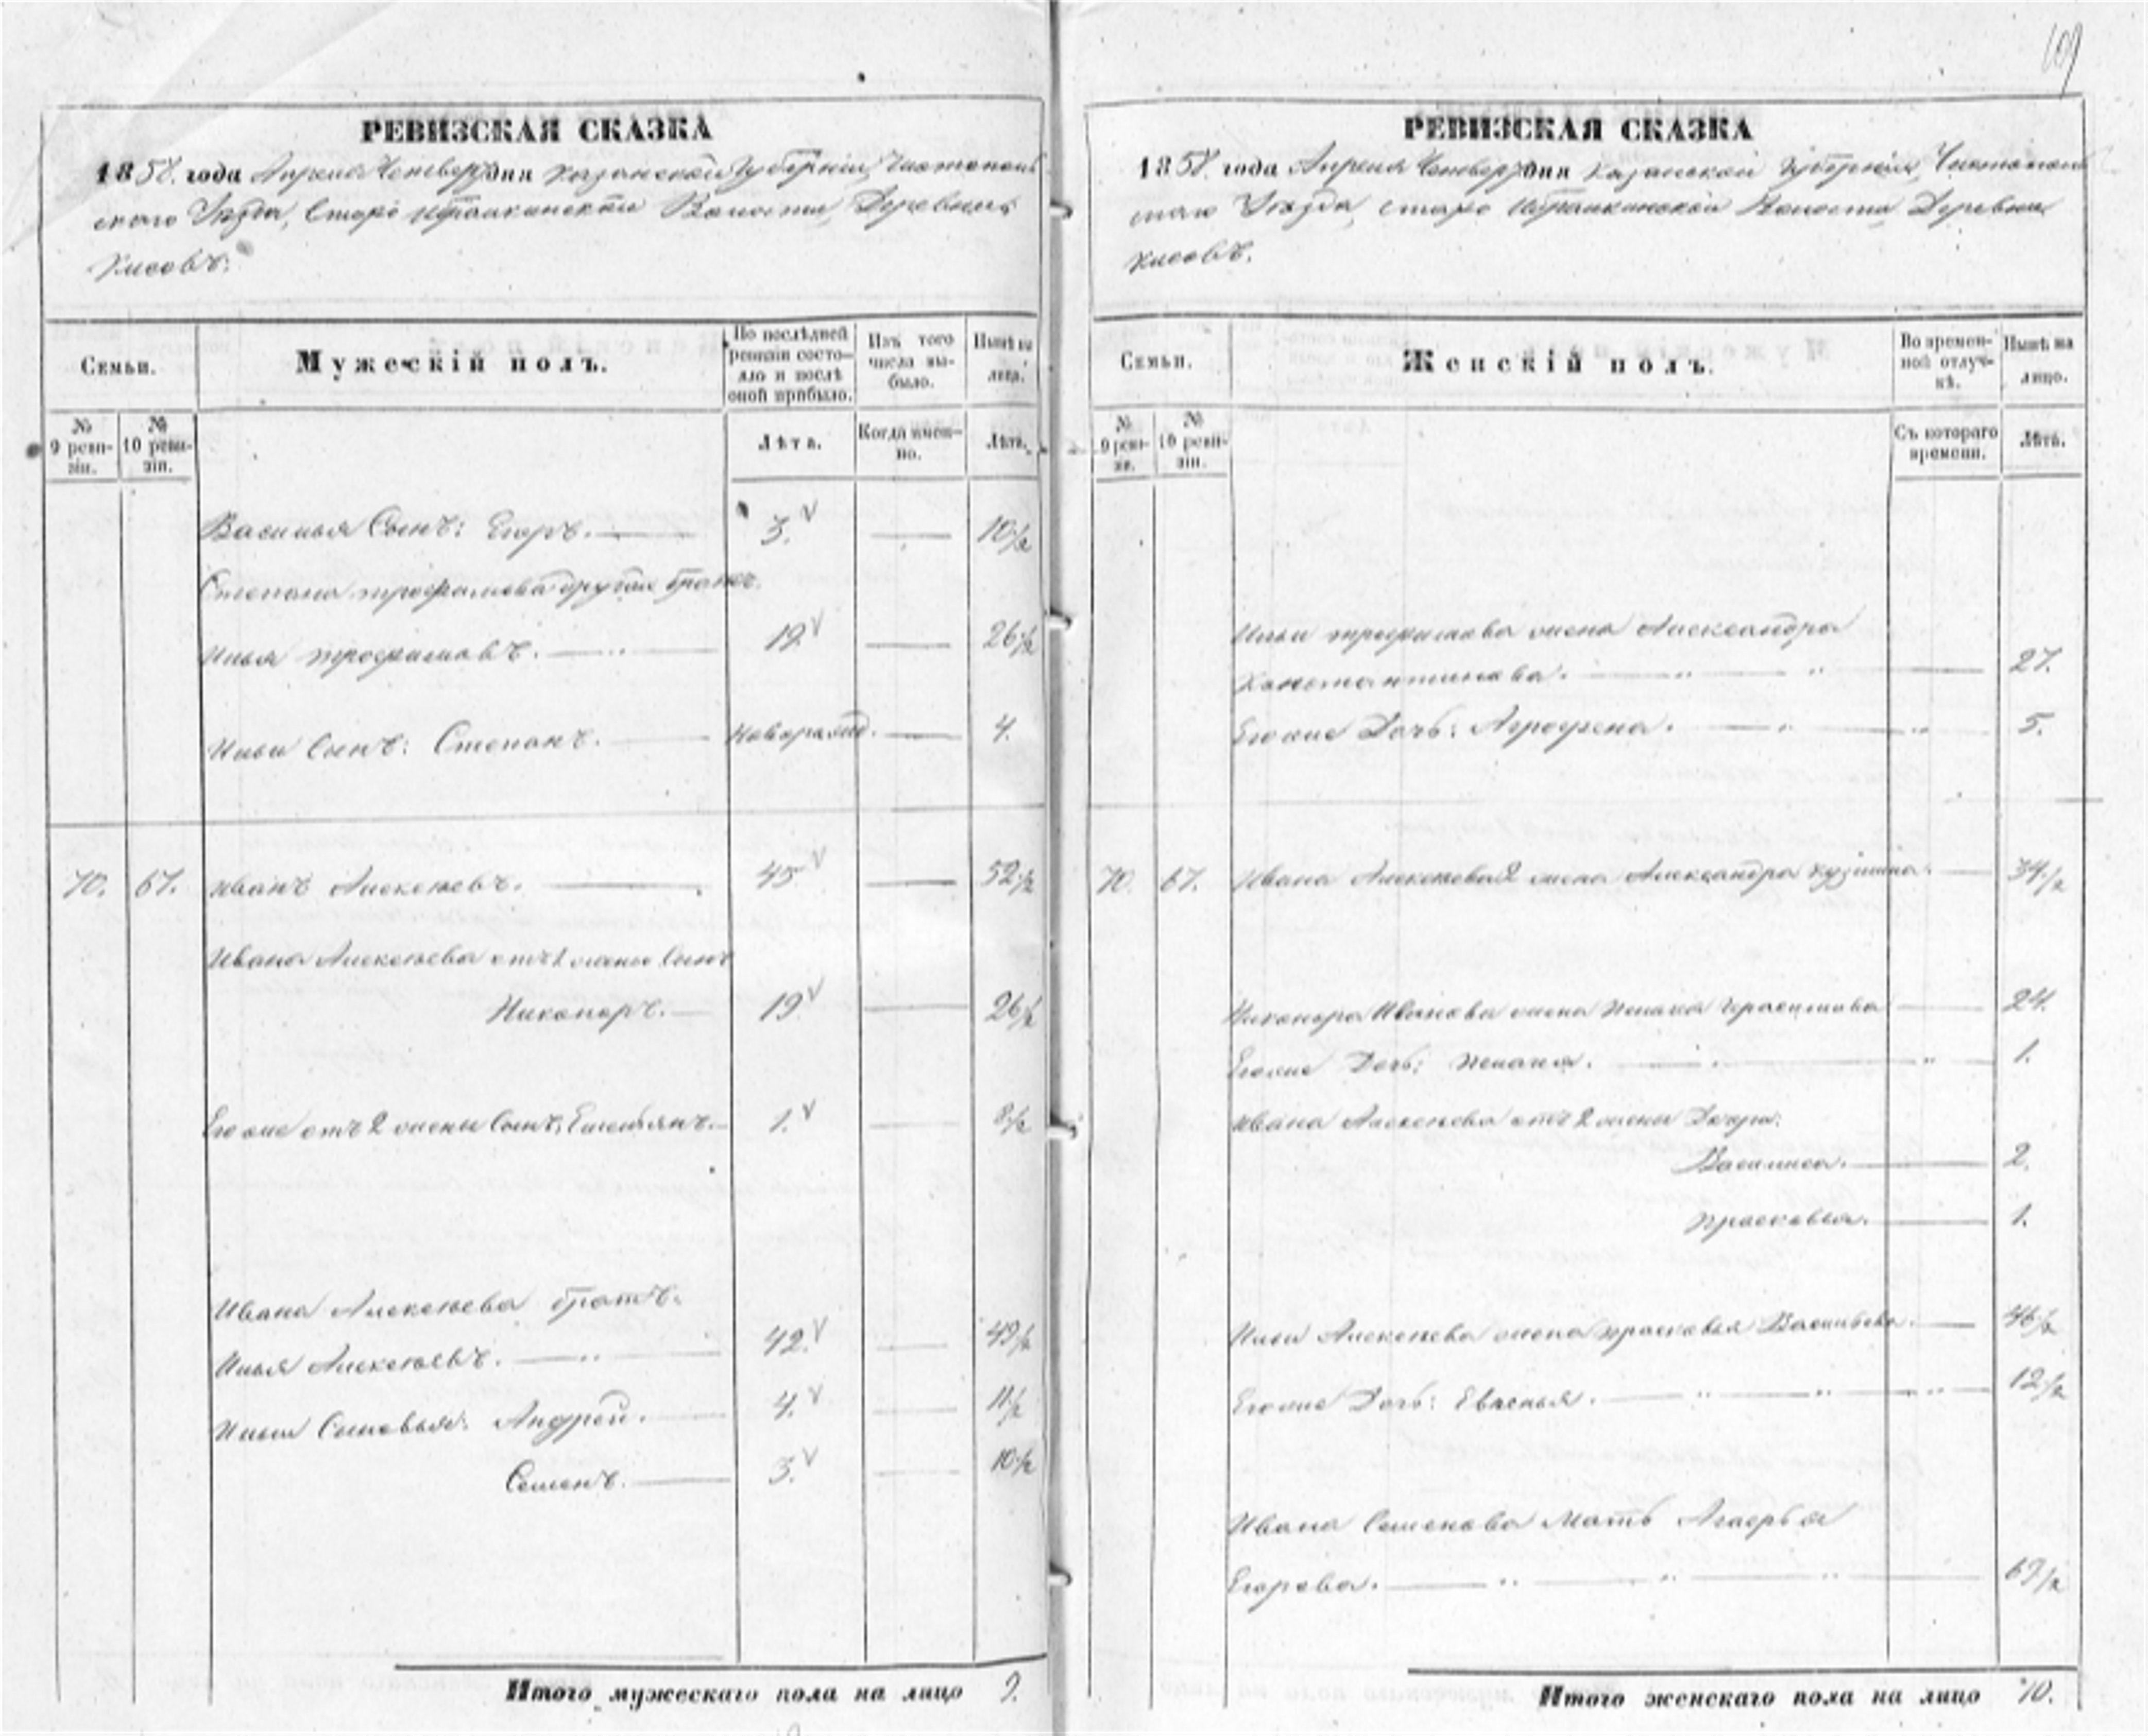 РЕВИЗСКАЯ СКАЗКА
1858. года Апреля Четвер дня Казанской Губерніи, Чистополь
скаго Уѣзда, Старо Волости, Деревни
Кисовъ.
Семьи.
Мужескій полъ.
По послѣдней
ревизіи состо-
яло и послѣ
оной прибыло.
Изъ того
числа вы-
было.
Нынѣ на
лицо.
№
9 реви-
зіи.
№
10 реви-
зіи.
Лѣта.
Когда имен-
но.
Лѣта.
Василья Сынъ: Егоръ. 3. 10½
Степана Трофимова другой братъ.
Илья Трофимовъ. 19 26½
Ильи Сынъ: Степанъ. Новорожд. 4.
70. 67. Иванъ Алексѣевъ. 45 52½
Ивана Алексѣева отъ 1 жены Сынъ
Никоноръ. 19 26½
Его же отъ 2 жены Сынъ, Емельянъ. 1. 8½
Ивана Алексѣева братъ.
Илья Алексѣевъ. 42. 49½
Ильи Сыновья: Андрей. 4. 11½
Семенъ. 3. 10½
Итого мужескаго пола на лицо 9.
РЕВИЗСКАЯ СКАЗКА
1858. года Апреля Четвер дня Казанской Губерніи, Чистополь
скаго Уѣзда, Старо Волости Деревни
Кисовъ.
Семьи.
Женскій полъ.
Во времен-
ной отлуч-
кѣ.
Нынѣ на
лицо.
№
9 реви-
зіи.
№
10 реви-
зіи.
Съ котораго
времени.
Лѣта.
Ильи Трофимова жена Александра
Константинова. 27.
Его же Дочь: Агрофена. 5.
70. 67. Ивана Алексѣева 2 жена Александра Кузмина. 34½
Никонора Иванова жена Герасимова 24.
Его же Дочь: 1.
Ивана Алексѣева отъ 2 жены Дочри:
Василиса. 2.
Прасковья. 1.
Ильи Алексѣева жена Прасковья Васильева. 46½
Его же Дочь: 12½
Ивана Семенова Мать
Егорова. 69½
Итого женскаго пола на лицо 10.